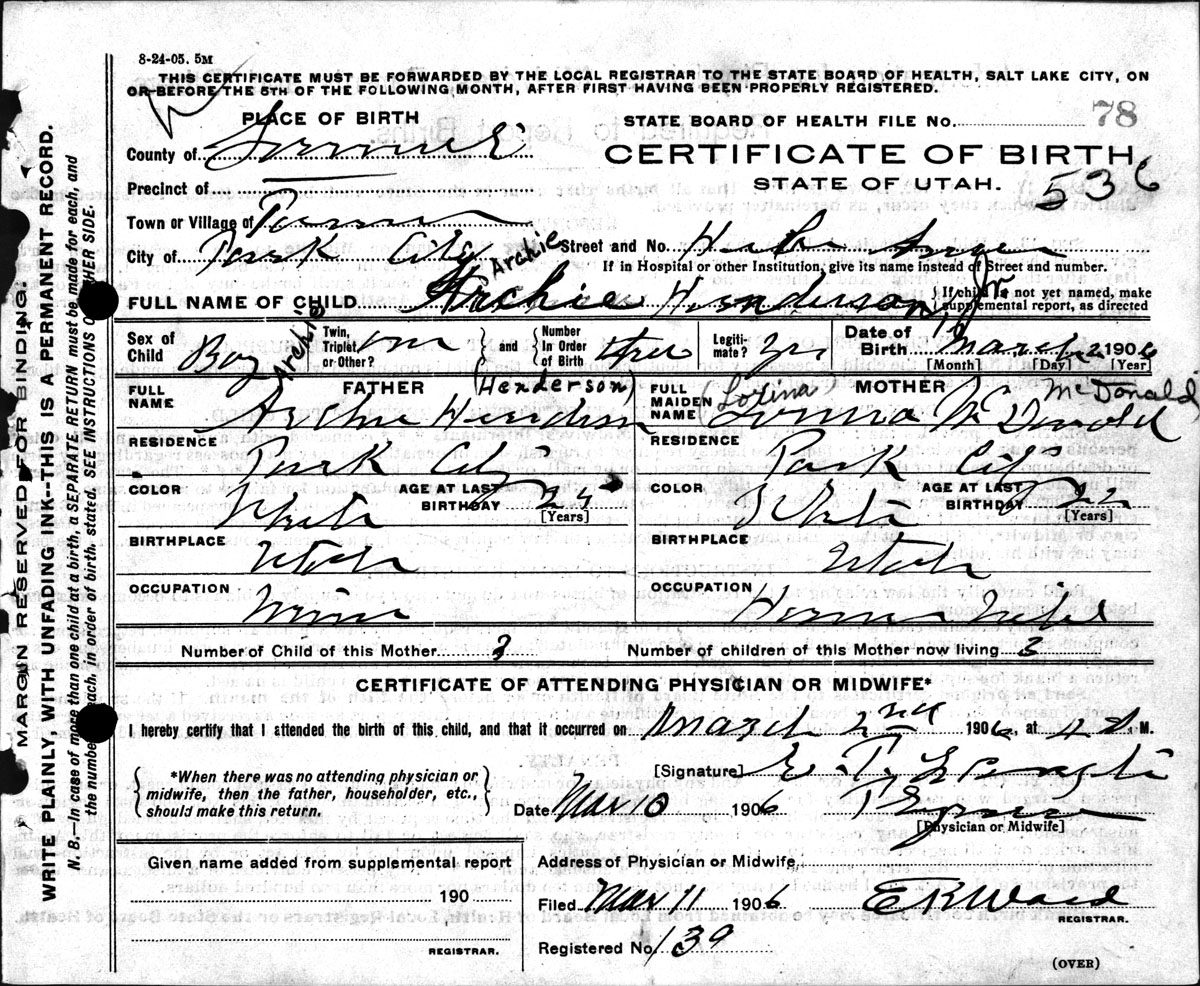 8-24-05. 5M
THIS CERTIFICATE MUST BE FORWARDED BY THE LOCAL REGISTRAR TO THE STATE BOARD OF HEALTH, SALT LAKE CITY, ON
OR BEFORE THE 5TH OF THE FOLLOWING MONTH, AFTER FIRST HAVING BEEN PROPERLY REGISTERED.
PLACE OF BIRTH
STATE BOARD OF HEALTH FILE No. 78
County of Summit
CERTIFICATE OF BIRTH
STATE OF UTAH. 536
Precinct of
Town or Village of
City of Park City Street and No.
Archie
If in Hospital or other Institution, give its name instead of Street and number.
FULL NAME OF CHILD Archie Henderson, Jr { If child is not yet named, make supplemental report, as directed
Sex of Child Boy Twin, Triplet, or Other? one } and { Number In Order of Birth three Legitimate? yes Date of Birth March 2 1906
[Month] [Day] [Year]
Archie
FATHER (Henderson)
FULL NAME Archie Henderson
MOTHER McDonald
FULL MAIDEN NAME (Lovina) McDonald
RESIDENCE Park City
RESIDENCE Park City
COLOR White AGE AT LAST BIRTHDAY 24 [Years]
COLOR White AGE AT LAST BIRTHDAY 22 [Years]
BIRTHPLACE Utah
BIRTHPLACE Utah
OCCUPATION Miner
OCCUPATION House Wife
Number of Child of this Mother 3 Number of children of this Mother now living 3
CERTIFICATE OF ATTENDING PHYSICIAN OR MIDWIFE*
I hereby certify that I attended the birth of this child, and that it occurred on March 2nd 1906, at 4 M.
{ *When there was no attending physician or midwife, then the father, householder, etc., should make this return. }
[Signature] E. P.
Date Mar 10 1906
[Physician or Midwife]
Given name added from supplemental report
190
REGISTRAR.
Address of Physician or Midwife
Filed Mar 11 1906 E R Ward
REGISTRAR.
Registered No. 139
(OVER)
MARGIN RESERVED FOR BINDING:
WRITE PLAINLY, WITH UNFADING INK--THIS IS A PERMANENT RECORD.
N. B.—In case of more than one child at a birth, a SEPARATE RETURN must be made for each, and
the number each, in order of birth, stated. SEE INSTRUCTIONS OTHER SIDE.